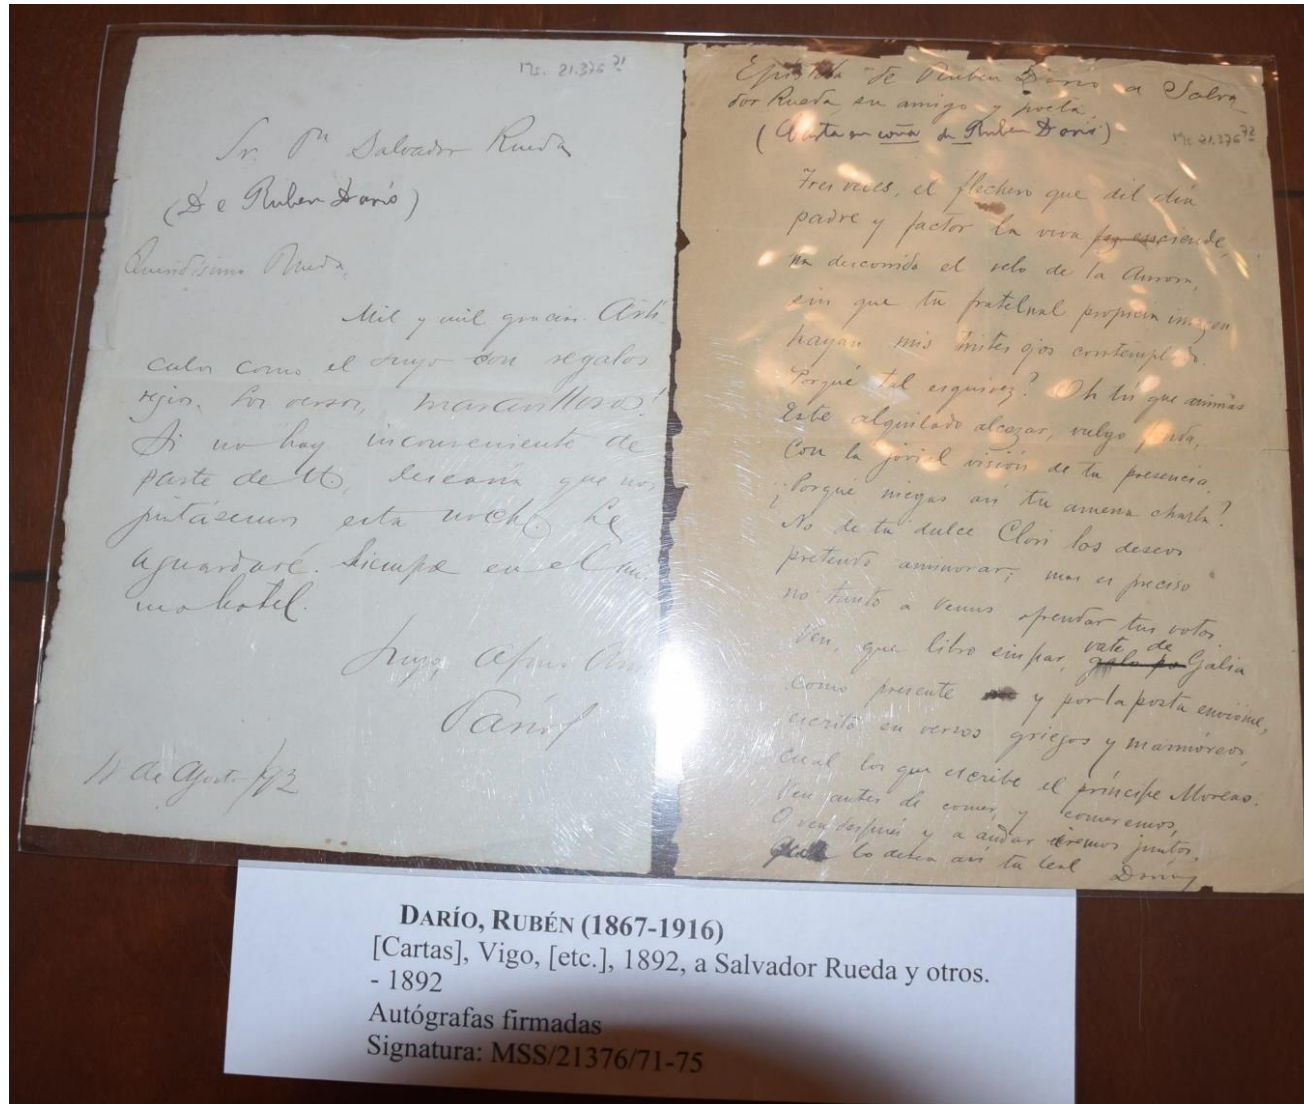 Ms. 21.376 71
Sr. Dn Salvador Rueda
(De Ruben Darío)
Queridísimo Rueda,
Mil y mil gracias. Artí
culos como el suyo son regalos
regios. Los versos, maravillosos!
Si no hay inconveniente de
parte de U, desearía que nos
juntásemos esta noche. Le
aguardaré. Siempre en el
mo hotel.
Suyo,
Darío
de Agosto /92
Epístola de Ruben Dario a Salva
dor Rueda su amigo y poeta.
(Carta en coña de Ruben Darió)
Ms. 21.376 72
Tres veces, el flechero que del día
padre y factor la viva enciende,
ha descorrido el velo de la Aurora,
sin que tu fratelnal propicia imagen
hayan mis tristes ojos contemplado.
Porqué tal esquivez? Oh tú que animas
Este alquilado alcazar, vulgo fonda,
Con la jovial visión de tu presencia,
¿Porqué niegas así tu amena charla?
No de tu dulce Clori los deseos
pretendo aminorar; mas es preciso
no tanto a Venus ofrendar tus votos.
Ven, que libro sin par, vate de Galia
como presente y por la posta envióme,
escrito en versos griegos y marmóreos,
cual los que escribe el príncipe Moreas.
Ven antes de comer, y comeremos,
O ven después y a andar iremos juntos,
lo desea así tu leal Darío
DARÍO, RUBÉN (1867-1916)
[Cartas], Vigo, [etc.], 1892, a Salvador Rueda y otros.
- 1892
Autógrafas firmadas
Signatura: MSS/21376/71-75